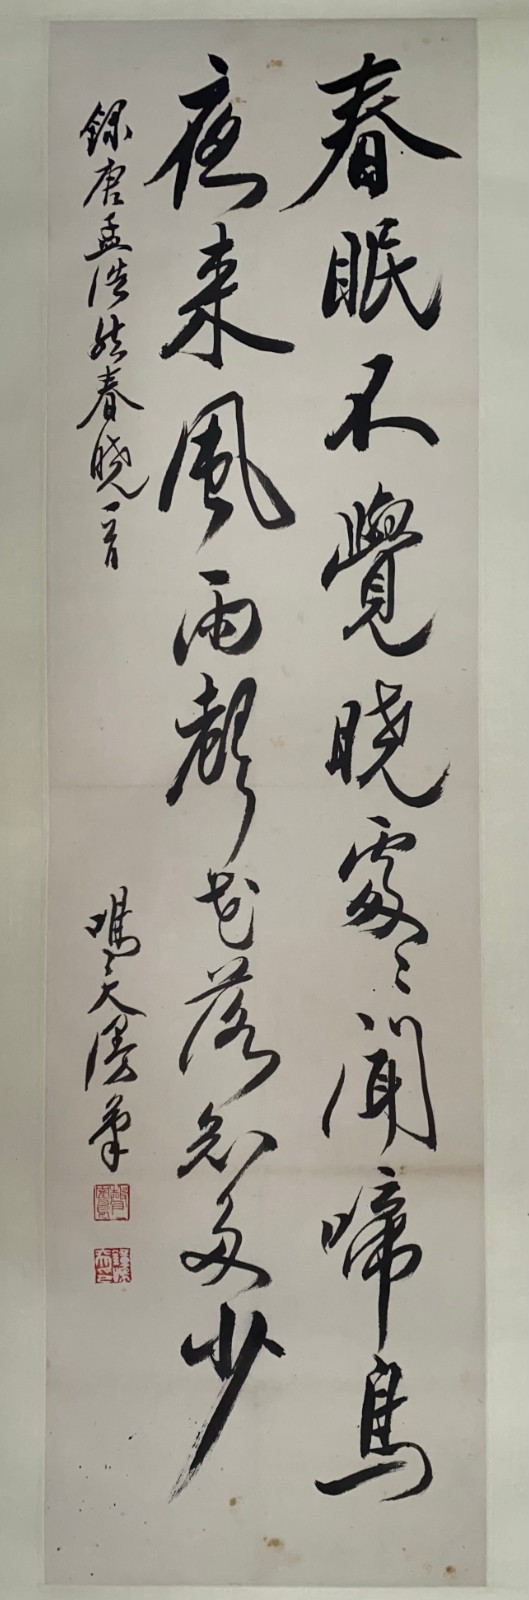 春眠不覺曉處々聞啼鳥
夜来風雨聲花落知多少
錄唐孟浩然春曉一首
鳴天漫筆